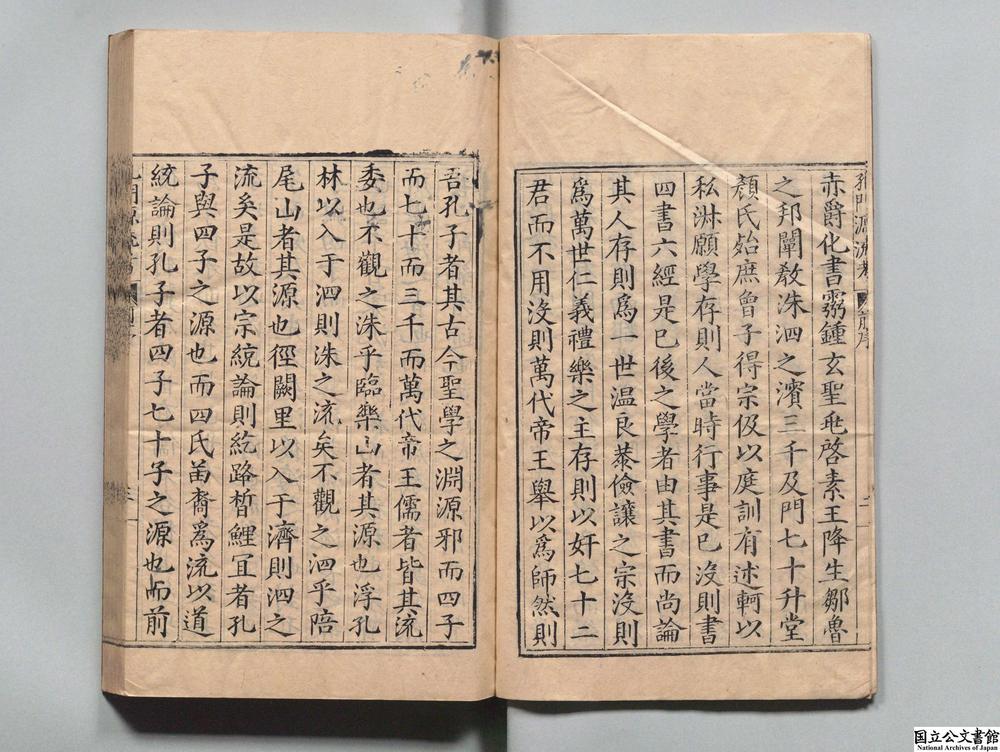 孔門源流考 前序 二
赤爵化書霛鍾玄聖乖啓素王降生鄒魯
之邦闡敎洙泗之濱三千及門七十升堂
顔氏殆庶曾子得宗伋以庭訓有述軻以
私淋願學存則人當時行事是已沒則書
四書六經是已後之學者由其書而尚論
其人存則爲一世温良恭儉讓之宗沒則
爲萬世仁義禮樂之主存則以奸七十二
君而不用沒則萬代帝王舉以爲師然則
吾孔子者其古今聖學之淵源邪而四子
而七十而三千而萬代帝王儒者皆其流
委也不觀之洙乎臨樂山者其源也浮孔
林以入于泗則洙之流矣不觀之泗乎陪
尾山者其源也徑闕里以入于濟則泗之
流矣是故以宗統論則紇路晳鯉冝者孔
子與四子之源也而四氏苗裔爲流以道
統論則孔子者四子七十子之源也而前
門源流 三
国立公文書館
National Archives of Japan